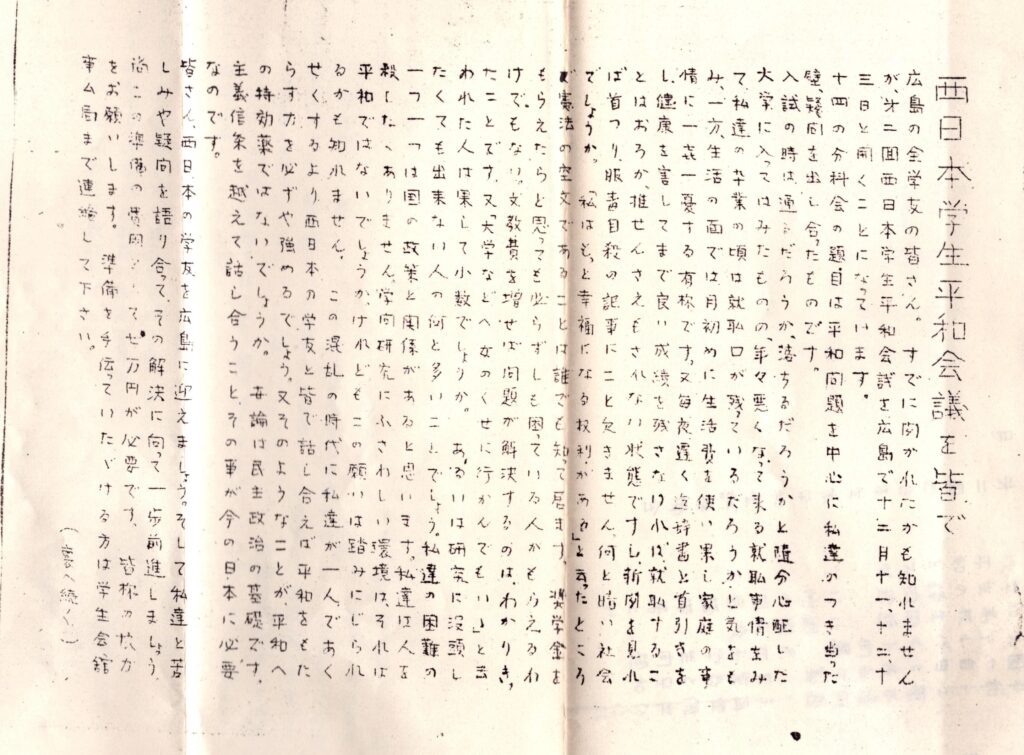 西日本学生平和会議を皆で
広島の全学友の皆さん。すでに聞かれたかも知れません
が、才二回西日本学生平和会議を広島で十二月十一、十二、十
三日と開くことになっています。
十四の分科会の題目は平和問題を中心に私達のつき当った
壁、疑問を出し合ったものです。
入試の時は、通るだろうか、落ちるだろうかと随分心配した
大学に入ってはみたものの、年々悪くなって来る就职事情をみ
て、私達の卒業の頃は就职口が残っているだろうかと気をも
み、一方、生活の面では月初めに生活費を使い果し、家庭の事
情に一喜一憂する有様です。又毎夜遅く迄辞書と首引きを
し、健康を害してまで良い成績を残さなければ、就职するこ
とはおろか、推せんさえもされない状態ですし、新聞を見れ
ば首つり、服毒自殺の記事にこと欠きません。何と暗い社会
でしょうか。「私はもっと幸福になる权利がある」と云ったところ
で憲法の空文であることは誰でも知って居ます。奨学金を
もらえたらと思っても必らずしも困っている人がもらえるわ
けでもなし、文教費を増せば問題が解決するのは、わかりき
たことです。又「大学などへ女のくせに行かんでもいゝ」と云
われた人は果して小数でしょうか。あるいは研究に没頭し
たくても出来ない人の何と多いことでしょう。私達の困難の
一つ一つは国の政策と関係があると思います。私達は人を
殺したくありません。学問研究にふさわしい環境は、それは
平和ではないでしょうか。けれどもこの願いは踏みにじられ
るかも知れません。この混乱の時代に私達が一人であく
せくするより西日本の学友と皆で話し合えば平和をもた
らす力を必ずや強めるでしょう。又そのようなことが、平和へ
の特効薬ではないでしょうか。世論は民主政治の基礎です。
主義信条を越えて話し合うこと、その事が今の日本に必要
なのです。
皆さん、西日本の学友を広島に迎えましょう。そして私達と苦
しみや疑問を語り合って、その解決に向って一歩前進しましょう
尚この準備の費用として七万円が必要です。皆様の協力
をお願いします。準備を手伝っていたゞける方は学生会館
事ム局まで連絡して下さい。
(裏へ続く)